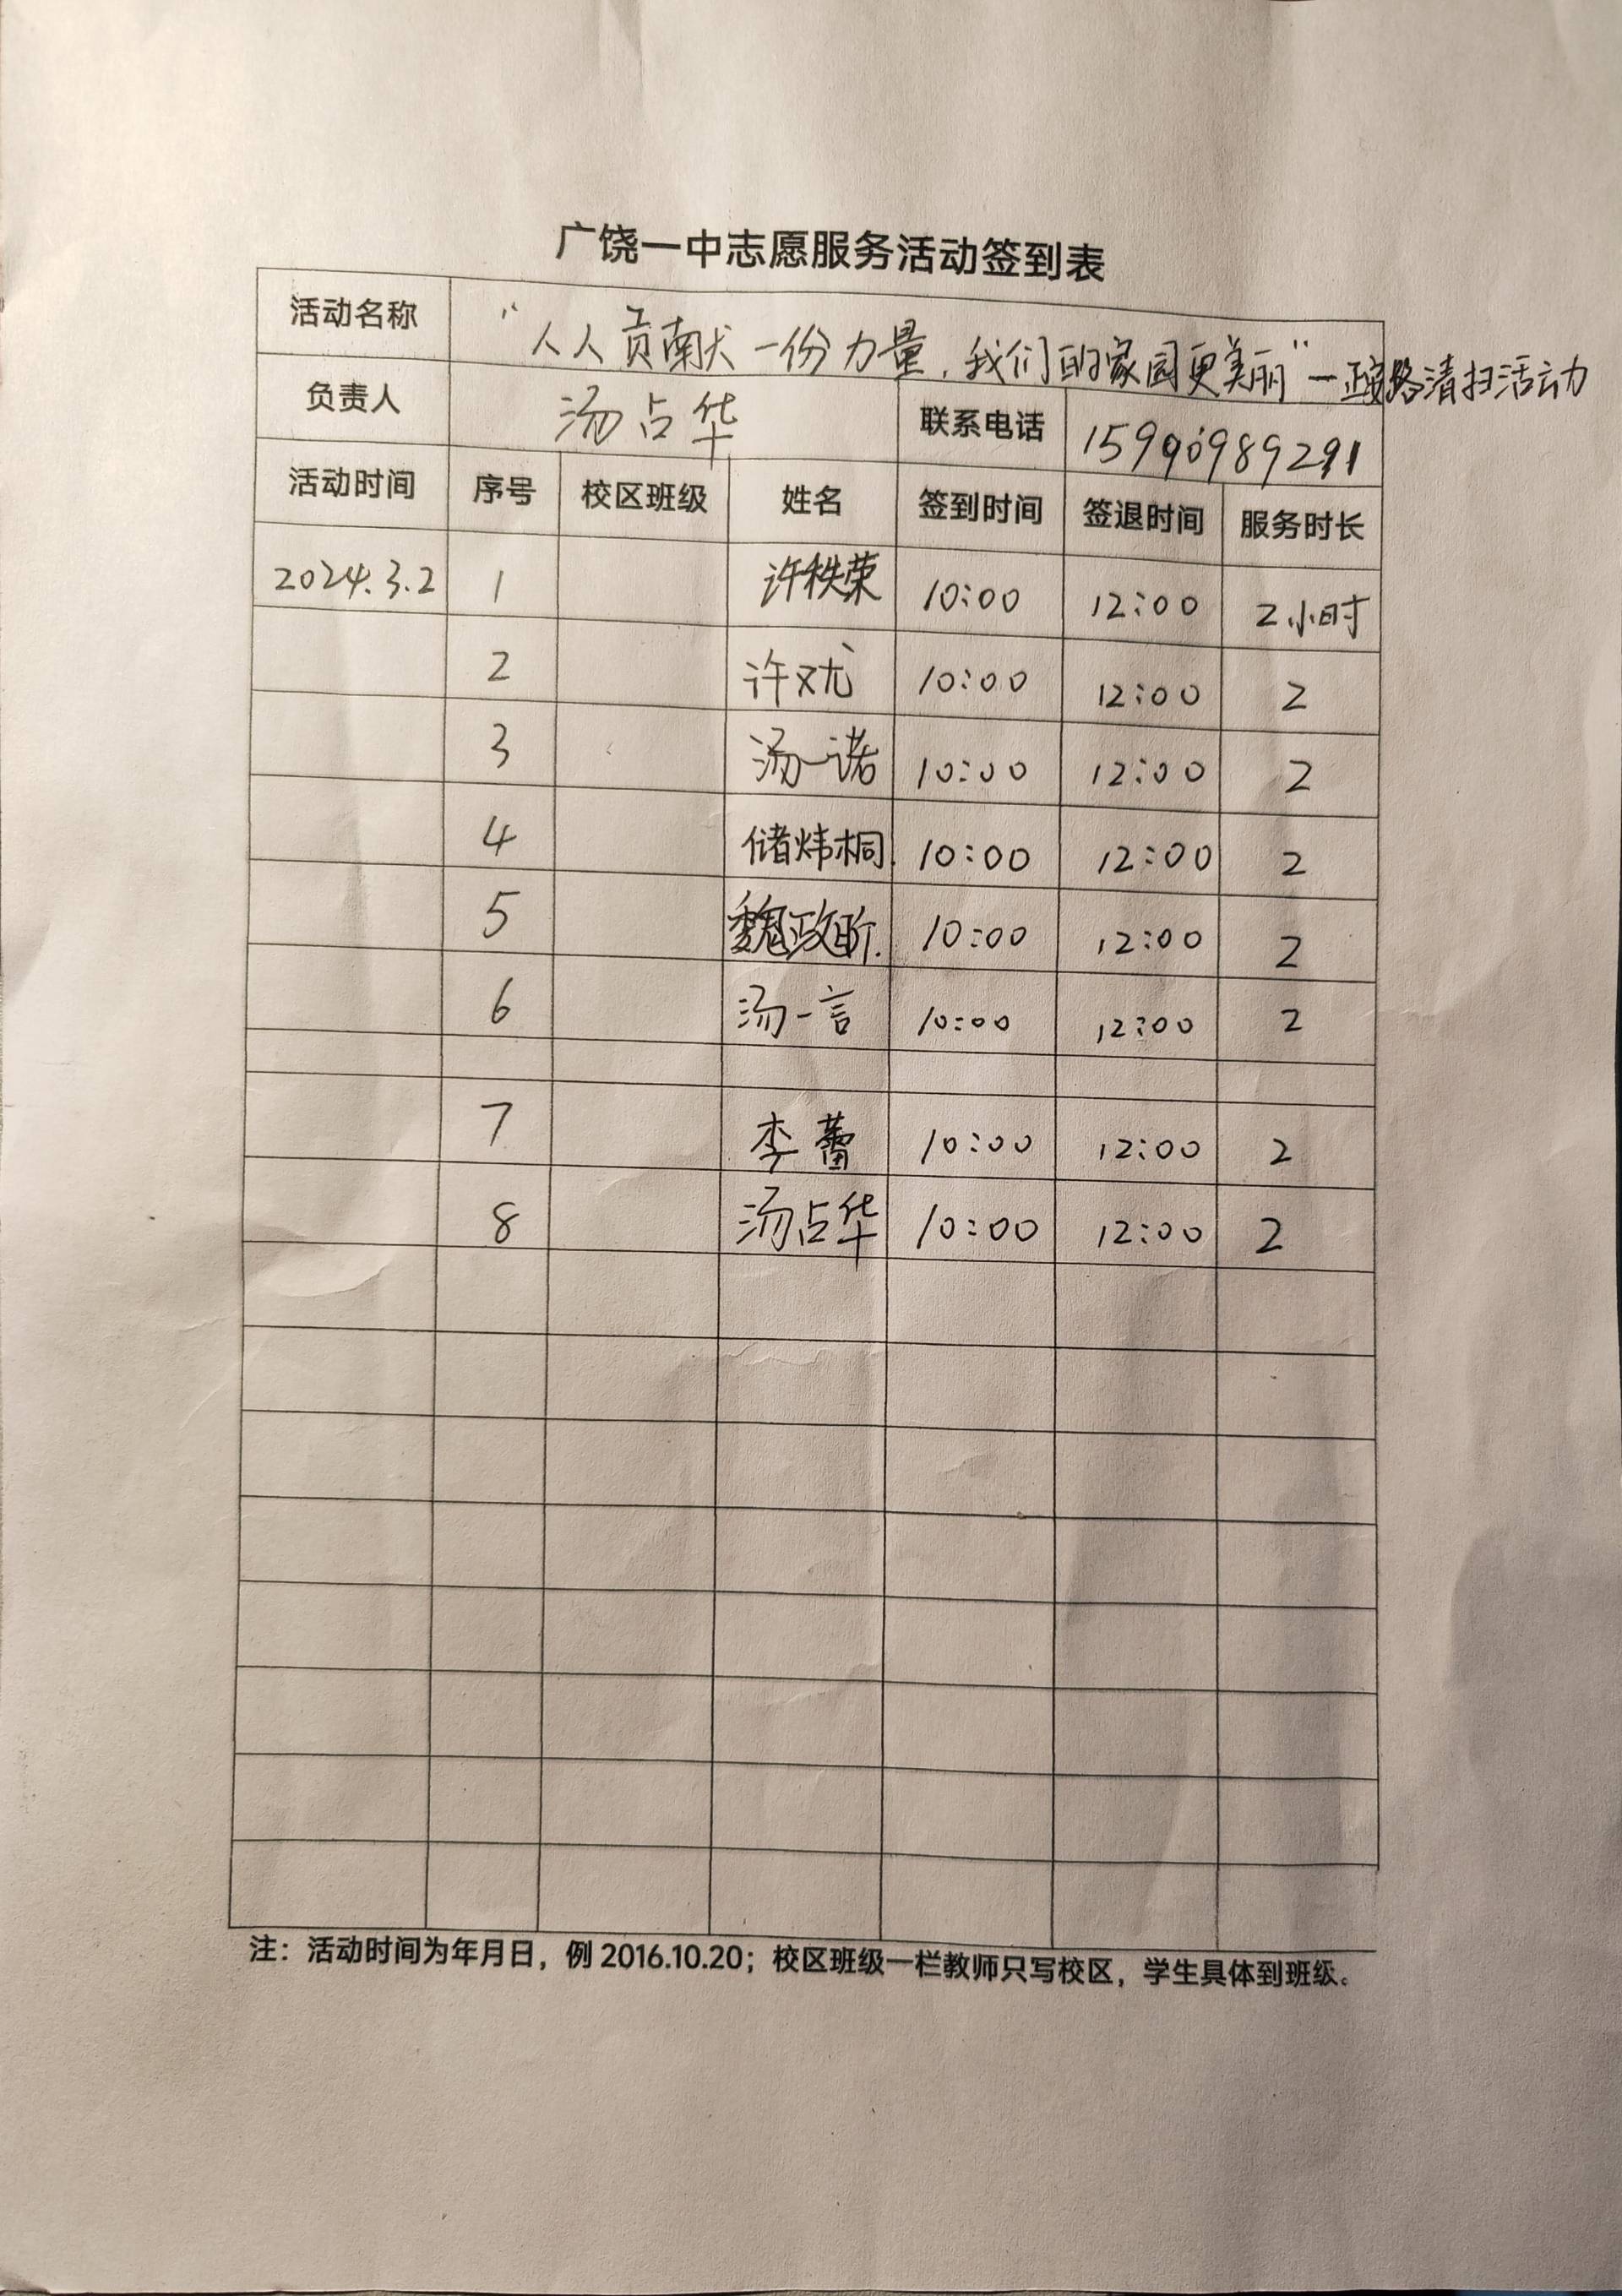 广饶一中志愿服务活动签到表
活动名称 “人人贡献一份力量，我们的家园更美丽”一 路清扫活动
负责人 汤占华 联系电话 15990989291
活动时间 序号 校区班级 姓名 签到时间 签退时间 服务时长
2024.3.2 1 许秩荣 10:00 12:00 2小时
2 许双尤 10:00 12:00 2
3 汤一诺 10:00 12:00 2
4 储炜桐 10:00 12:00 2
5 魏政昕 10:00 12:00 2
6 汤一言 10:00 12:00 2
7 李蕾 10:00 12:00 2
8 汤占华 10:00 12:00 2
注：活动时间为年月日，例 2016.10.20；校区班级一栏教师只写校区，学生具体到班级。